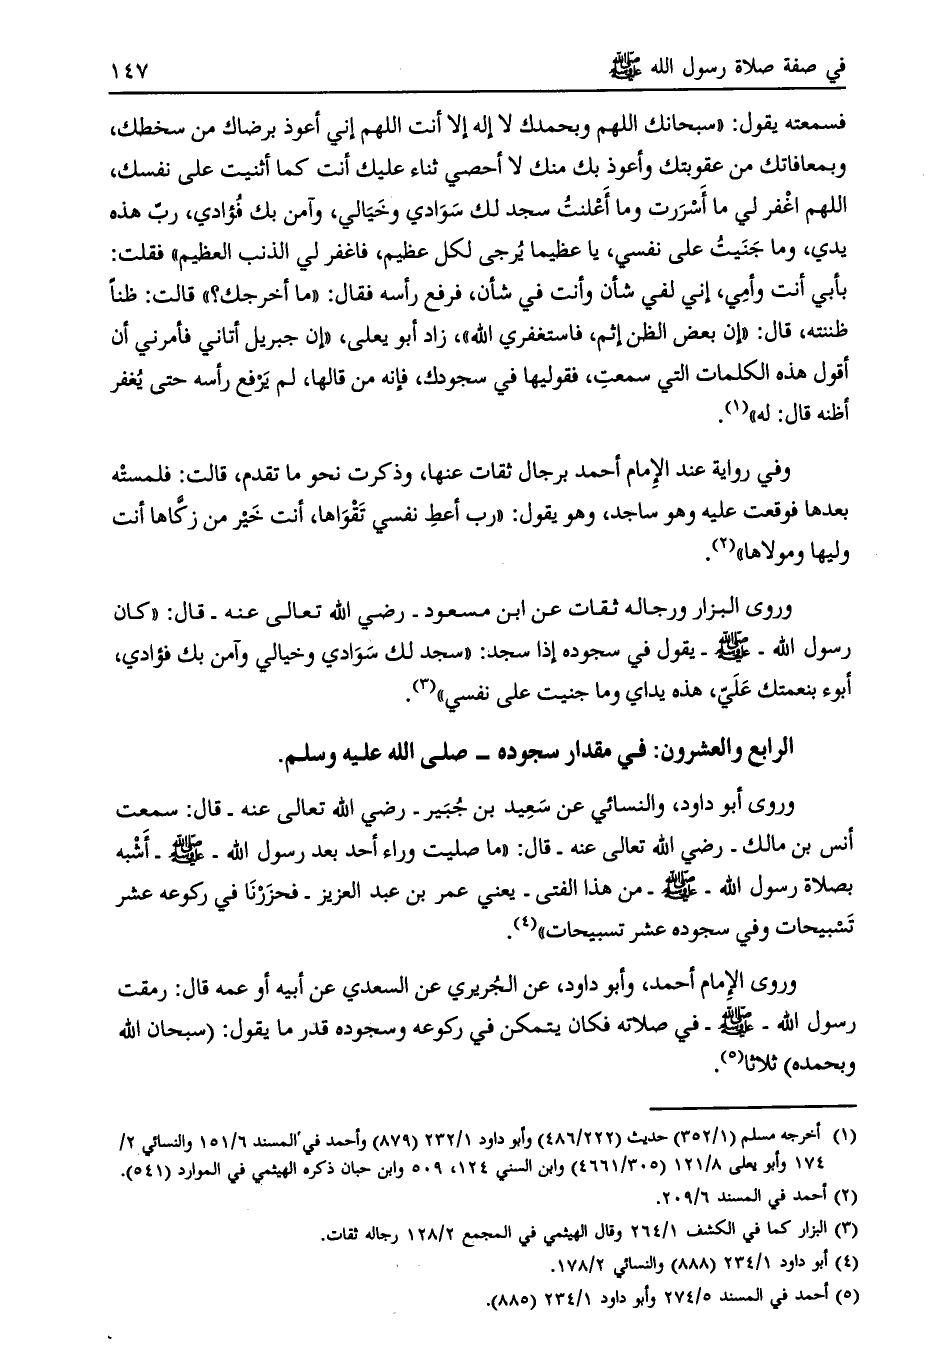 في صفة صلاة رسول الله ﷺ ١٤٧
فسمعته يقول: «سبحانك اللهم وبحمدك لا إله إلا أنت اللهم إني أعوذ برضاك من سخطك،
وبمعافاتك من عقوبتك وأعوذ بك منك لا أحصي ثناء عليك أنت كما أثنيت على نفسك،
اللهم اغْفر لي ما أَسْرَرت وما أَعْلنتُ سجد لك سَوَادي وخَيَالي، وآمن بك فُؤادي، ربّ هذه
يدي، وما جَنَيتُ على نفسي، يا عظيما يُرجى لكل عظيم، فاغفر لي الذنب العظيم» فقلت:
بأبي أنت وأمي، إني لفي شأن وأنت في شأن، فرفع رأسه فقال: «ما أخرجك؟» قالت: ظناً
ظننته، قال: «إن بعض الظن إثم، فاستغفري الله»، زاد أبو يعلى، «إن جبريل أتاني فأمرني أن
أقول هذه الكلمات التي سمعتِ، فقوليها في سجودك، فإنه من قالها، لم يَرْفع رأسه حتى يُغفر
أظنه قال: له»(١).
وفي رواية عند الإمام أحمد برجال ثقات عنها، وذكرت نحو ما تقدم، قالت: فلمستْه
بعدها فوقعت عليه وهو ساجد، وهو يقول: «رب أعطِ نفسي تَقْوَاها، أنت خَيْر من زكَّاها أنت
وليها ومولاها»(٢).
وروى البزار ورجاله ثقات عن ابن مسعود ـ رضي الله تعالى عنه ـ قال: «كان
رسول الله ـ ﷺ ـ يقول في سجوده إذا سجد: «سجد لك سَوَادي وخيالي وآمن بك فؤادي،
أبوء بنعمتك عَلَيّ، هذه يداي وما جنيت على نفسي»(٣).
الرابع والعشرون: في مقدار سجوده ـ صلى الله عليه وسلم.
وروى أبو داود، والنسائي عن سَعِيد بن جُبَير ـ رضي الله تعالى عنه ـ قال: سمعت
أنس بن مالك ـ رضي الله تعالى عنه ـ قال: «ما صليت وراء أحد بعد رسول الله ـ ﷺ ـ أَشْبه
بصلاة رسول الله ـ ﷺ ـ من هذا الفتى ـ يعني عمر بن عبد العزيز ـ فحزَرْنَا في ركوعه عشر
تَسْبيحات وفي سجوده عشر تسبيحات»(٤).
وروى الإمام أحمد، وأبو داود، عن الجُريري عن السعدي عن أبيه أو عمه قال: رمقت
رسول الله ـ ﷺ ـ في صلاته فكان يتمكن في ركوعه وسجوده قدر ما يقول: (سبحان الله
وبحمده) ثلاثا(٥).
(١) أخرجه مسلم (٣٥٢/١) حديث (٤٨٦/٢٢٢) وأبو داود ٢٣٢/١ (٨٧٩) وأحمد في المسند ١٥١/٦ والنسائي ٢/
١٧٤ وأبو يعلى ١٢١/٨ (٤٦٦١/٣٠٥) وابن السني ١٢٤، ٥٠٩ وابن حبان ذكره الهيثمي في الموارد (٥٤١).
(٢) أحمد في المسند ٢٠٩/٦.
(٣) البزار كما في الكشف ٢٦٤/١ وقال الهيثمي في المجمع ١٢٨/٢ رجاله ثقات.
(٤) أبو داود ٢٣٤/١ (٨٨٨) والنسائي ١٧٨/٢.
(٥) أحمد في المسند ٢٧٤/٥ وأبو داود ٢٣٤/١ (٨٨٥).